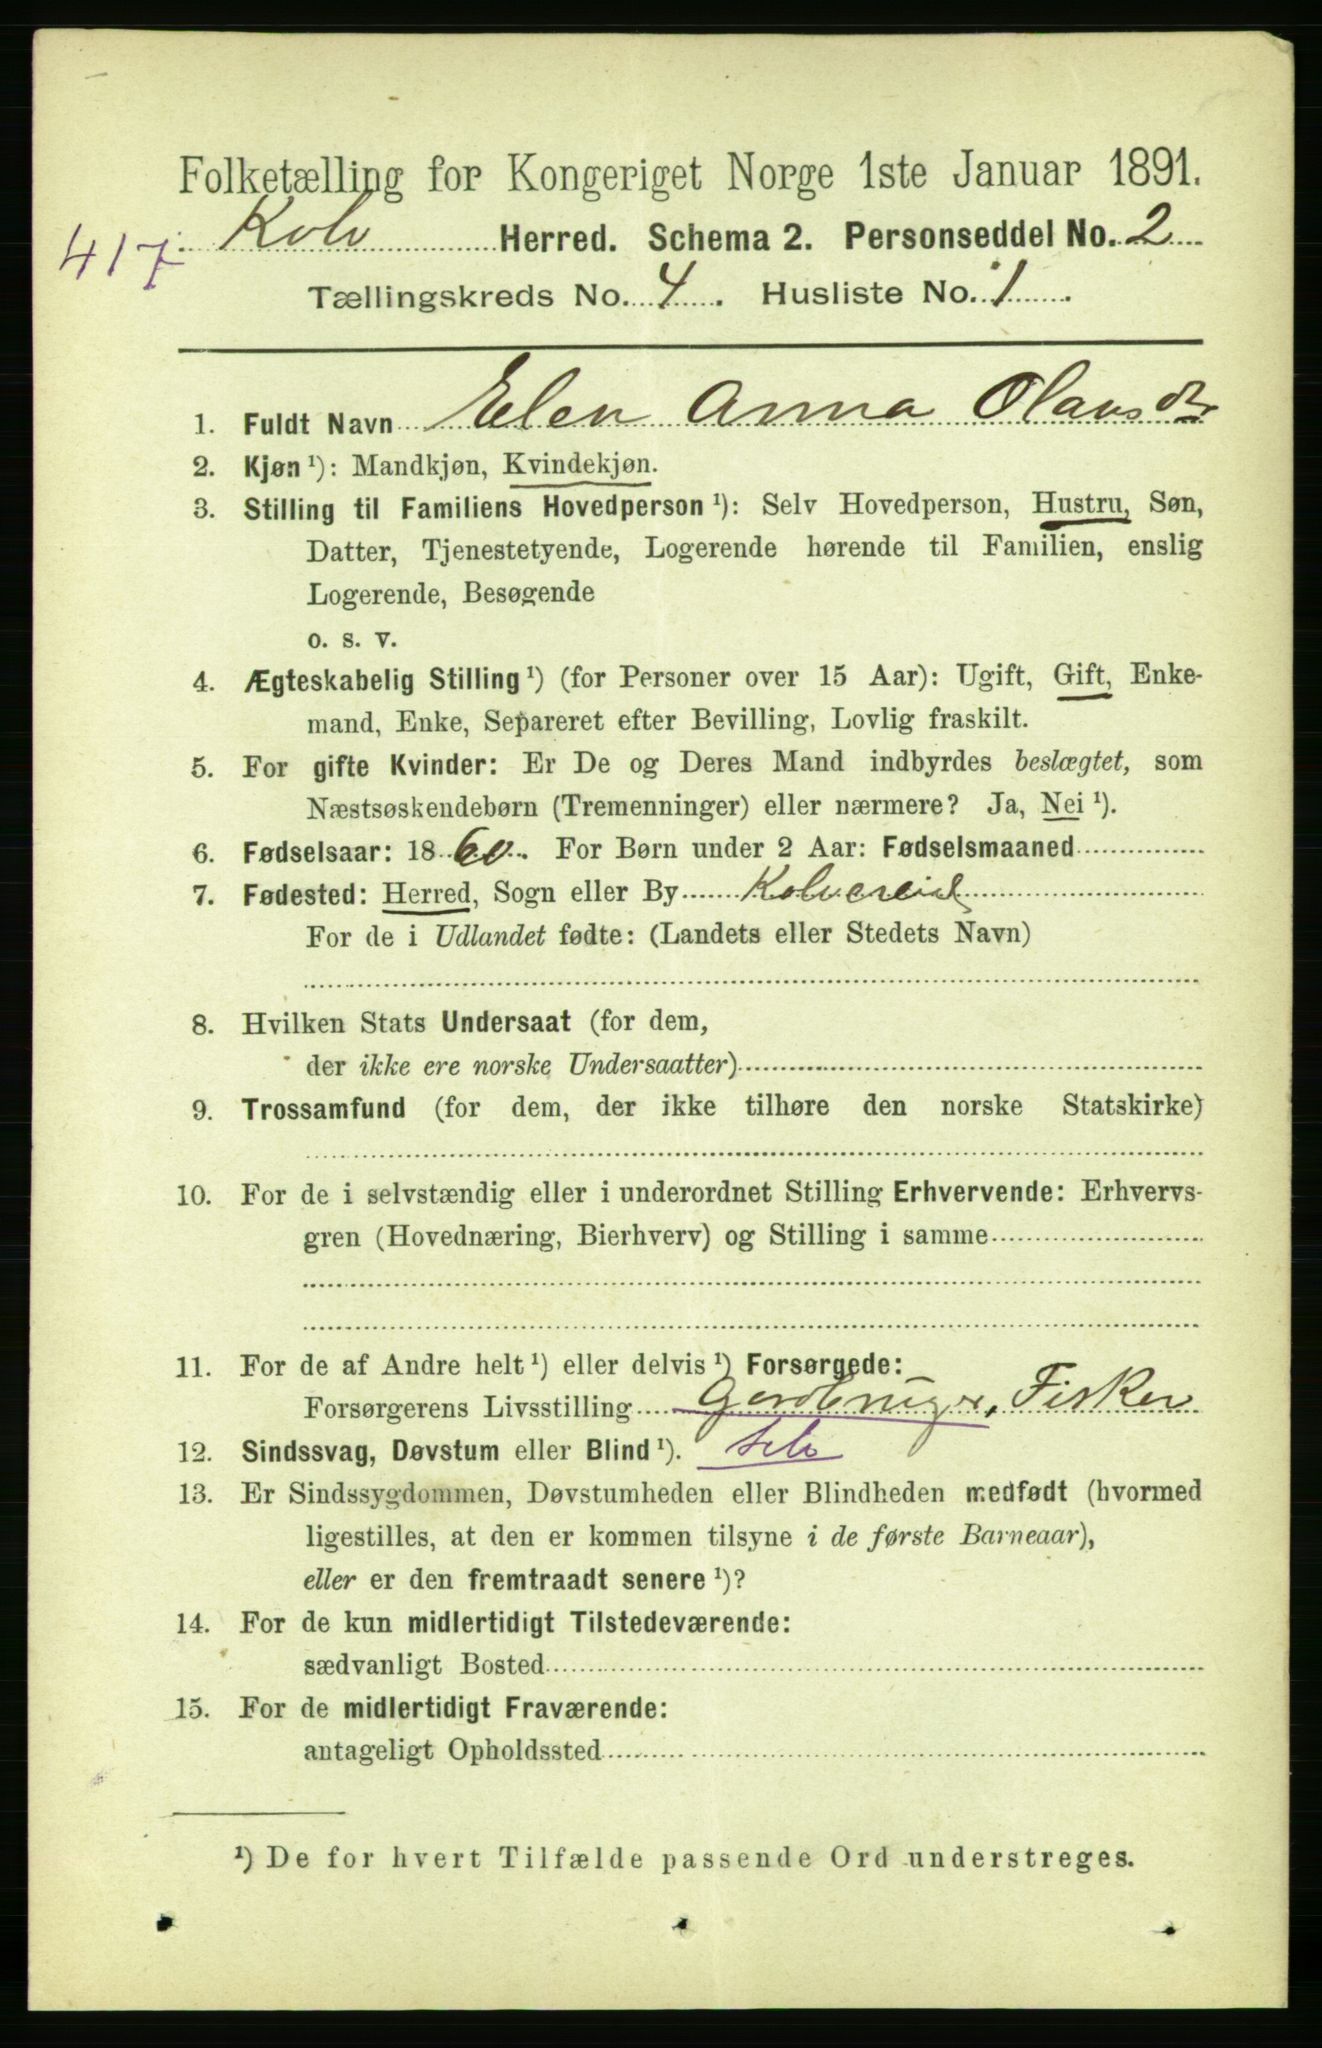 Folketælling for Kongeriget Norge 1ste Januar 1891.
417 Kolv Herred. Schema 2. Personseddel No. 2
Tællingskreds No. 4. Husliste No. 1.
1. Fuldt Navn Elen Anna Olausdr
2. Kjøn ¹): Mandkjøn, Kvindekjøn.
3. Stilling til Familiens Hovedperson ¹): Selv Hovedperson, Hustru, Søn,
Datter, Tjenestetyende, Logerende hørende til Familien, enslig
Logerende, Besøgende
o. s. v.
4. Ægteskabelig Stilling ¹) (for Personer over 15 Aar): Ugift, Gift, Enke-
mand, Enke, Separeret efter Bevilling, Lovlig fraskilt.
5. For gifte Kvinder: Er De og Deres Mand indbyrdes beslægtet, som
Næstsøskendebørn (Tremenninger) eller nærmere? Ja, Nei ¹).
6. Fødselsaar: 1860. For Børn under 2 Aar: Fødselsmaaned
7. Fødested: Herred, Sogn eller By Kolvereid
For de i Udlandet fødte: (Landets eller Stedets Navn)
8. Hvilken Stats Undersaat (for dem,
der ikke ere norske Undersaatter)
9. Trossamfund (for dem, der ikke tilhøre den norske Statskirke)
10. For de i selvstændig eller i underordnet Stilling Erhvervende: Erhvervs-
gren (Hovednæring, Bierhverv) og Stilling i samme
11. For de af Andre helt ¹) eller delvis ¹) Forsørgede:
Forsørgerens Livsstilling Gardbruger, Fisker
12. Sindssvag, Døvstum eller Blind ¹). selv
13. Er Sindssygdommen, Døvstumheden eller Blindheden medfødt (hvormed
ligestilles, at den er kommen tilsyne i de første Barneaar),
eller er den fremtraadt senere ¹)?
14. For de kun midlertidigt Tilstedeværende:
sædvanligt Bosted
15. For de midlertidigt Fraværende:
antageligt Opholdssted
¹) De for hvert Tilfælde passende Ord understreges.